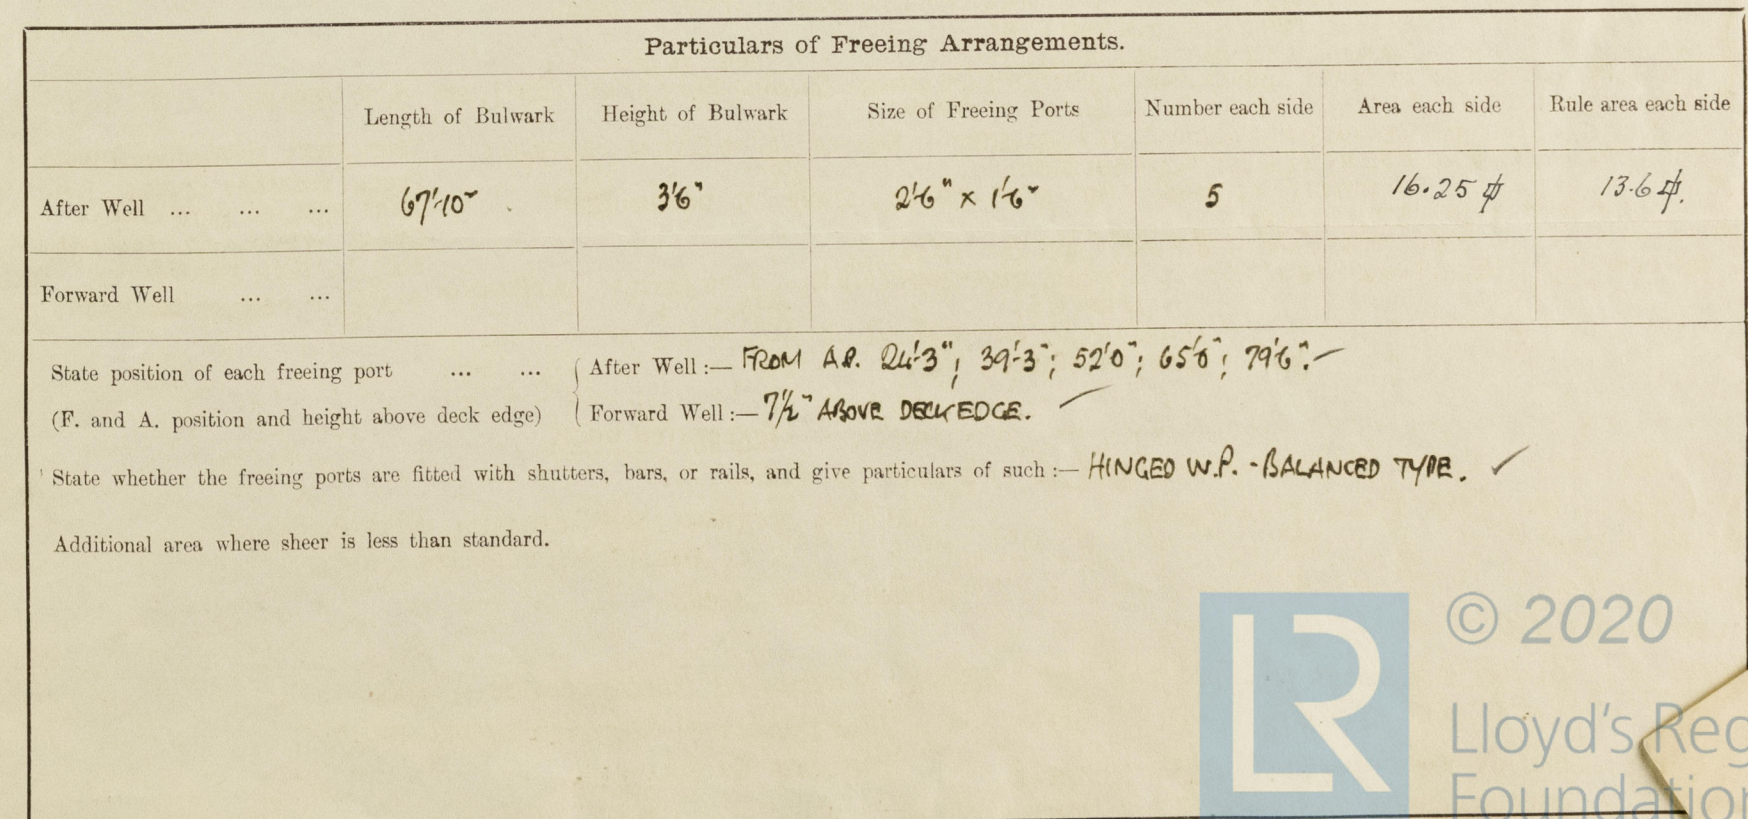 Particulars of Freeing Arrangements.
Length of Bulwark Height of Bulwark Size of Freeing Ports Number each side Area each side Rule area each side
After Well ... ... ... 67'-10" 3'6" 2'6" x 1'6" 5 16.25 ⏍ 13.6 ⏍.
Forward Well ... ...
State position of each freeing port ... ... { After Well :— FROM A.P. 24'-3"; 39'-3"; 52'0"; 65'6"; 79'6".
(F. and A. position and height above deck edge) Forward Well :— 7½" ABOVE DECK EDGE.
State whether the freeing ports are fitted with shutters, bars, or rails, and give particulars of such :— HINGED W.P. - BALANCED TYPE. ✓
Additional area where sheer is less than standard.
LR
© 2020
Lloyd's Reg
Foundation